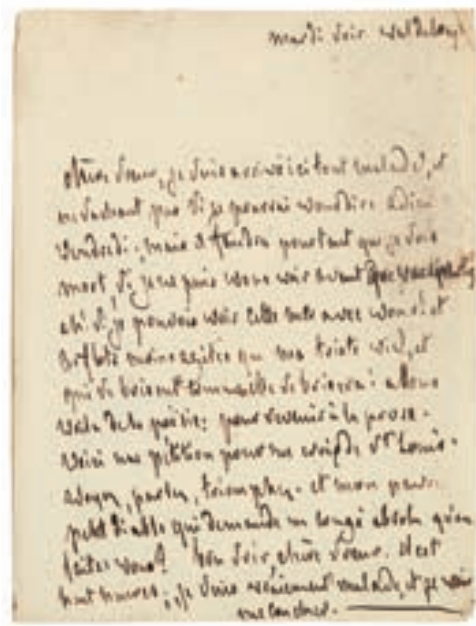 mardi soir.
chère Sœur, je suis arrivé ici tout malade, et
ne sachant pas si je pourrai vous dire adieu
vendredi; mais il faudra pourtant que je sois
mort, si je ne puis vous voir avant que vous
ah! si je pouvois voir cette mer avec vous! et
moins agités que ma triste vie, et
qui se brisent comme elle se brisera!
voila de la poésie; pour revenir à la prose.
voici une pétition pour une croix de St Louis.
voyez, parlez, triomphez. et mon pauvre
petit diable qui demande un congé absolu qu'en
faites vous? bon soir, chère Sœur. il est
huit heures; je suis vraiment malade, et je vais
me coucher.